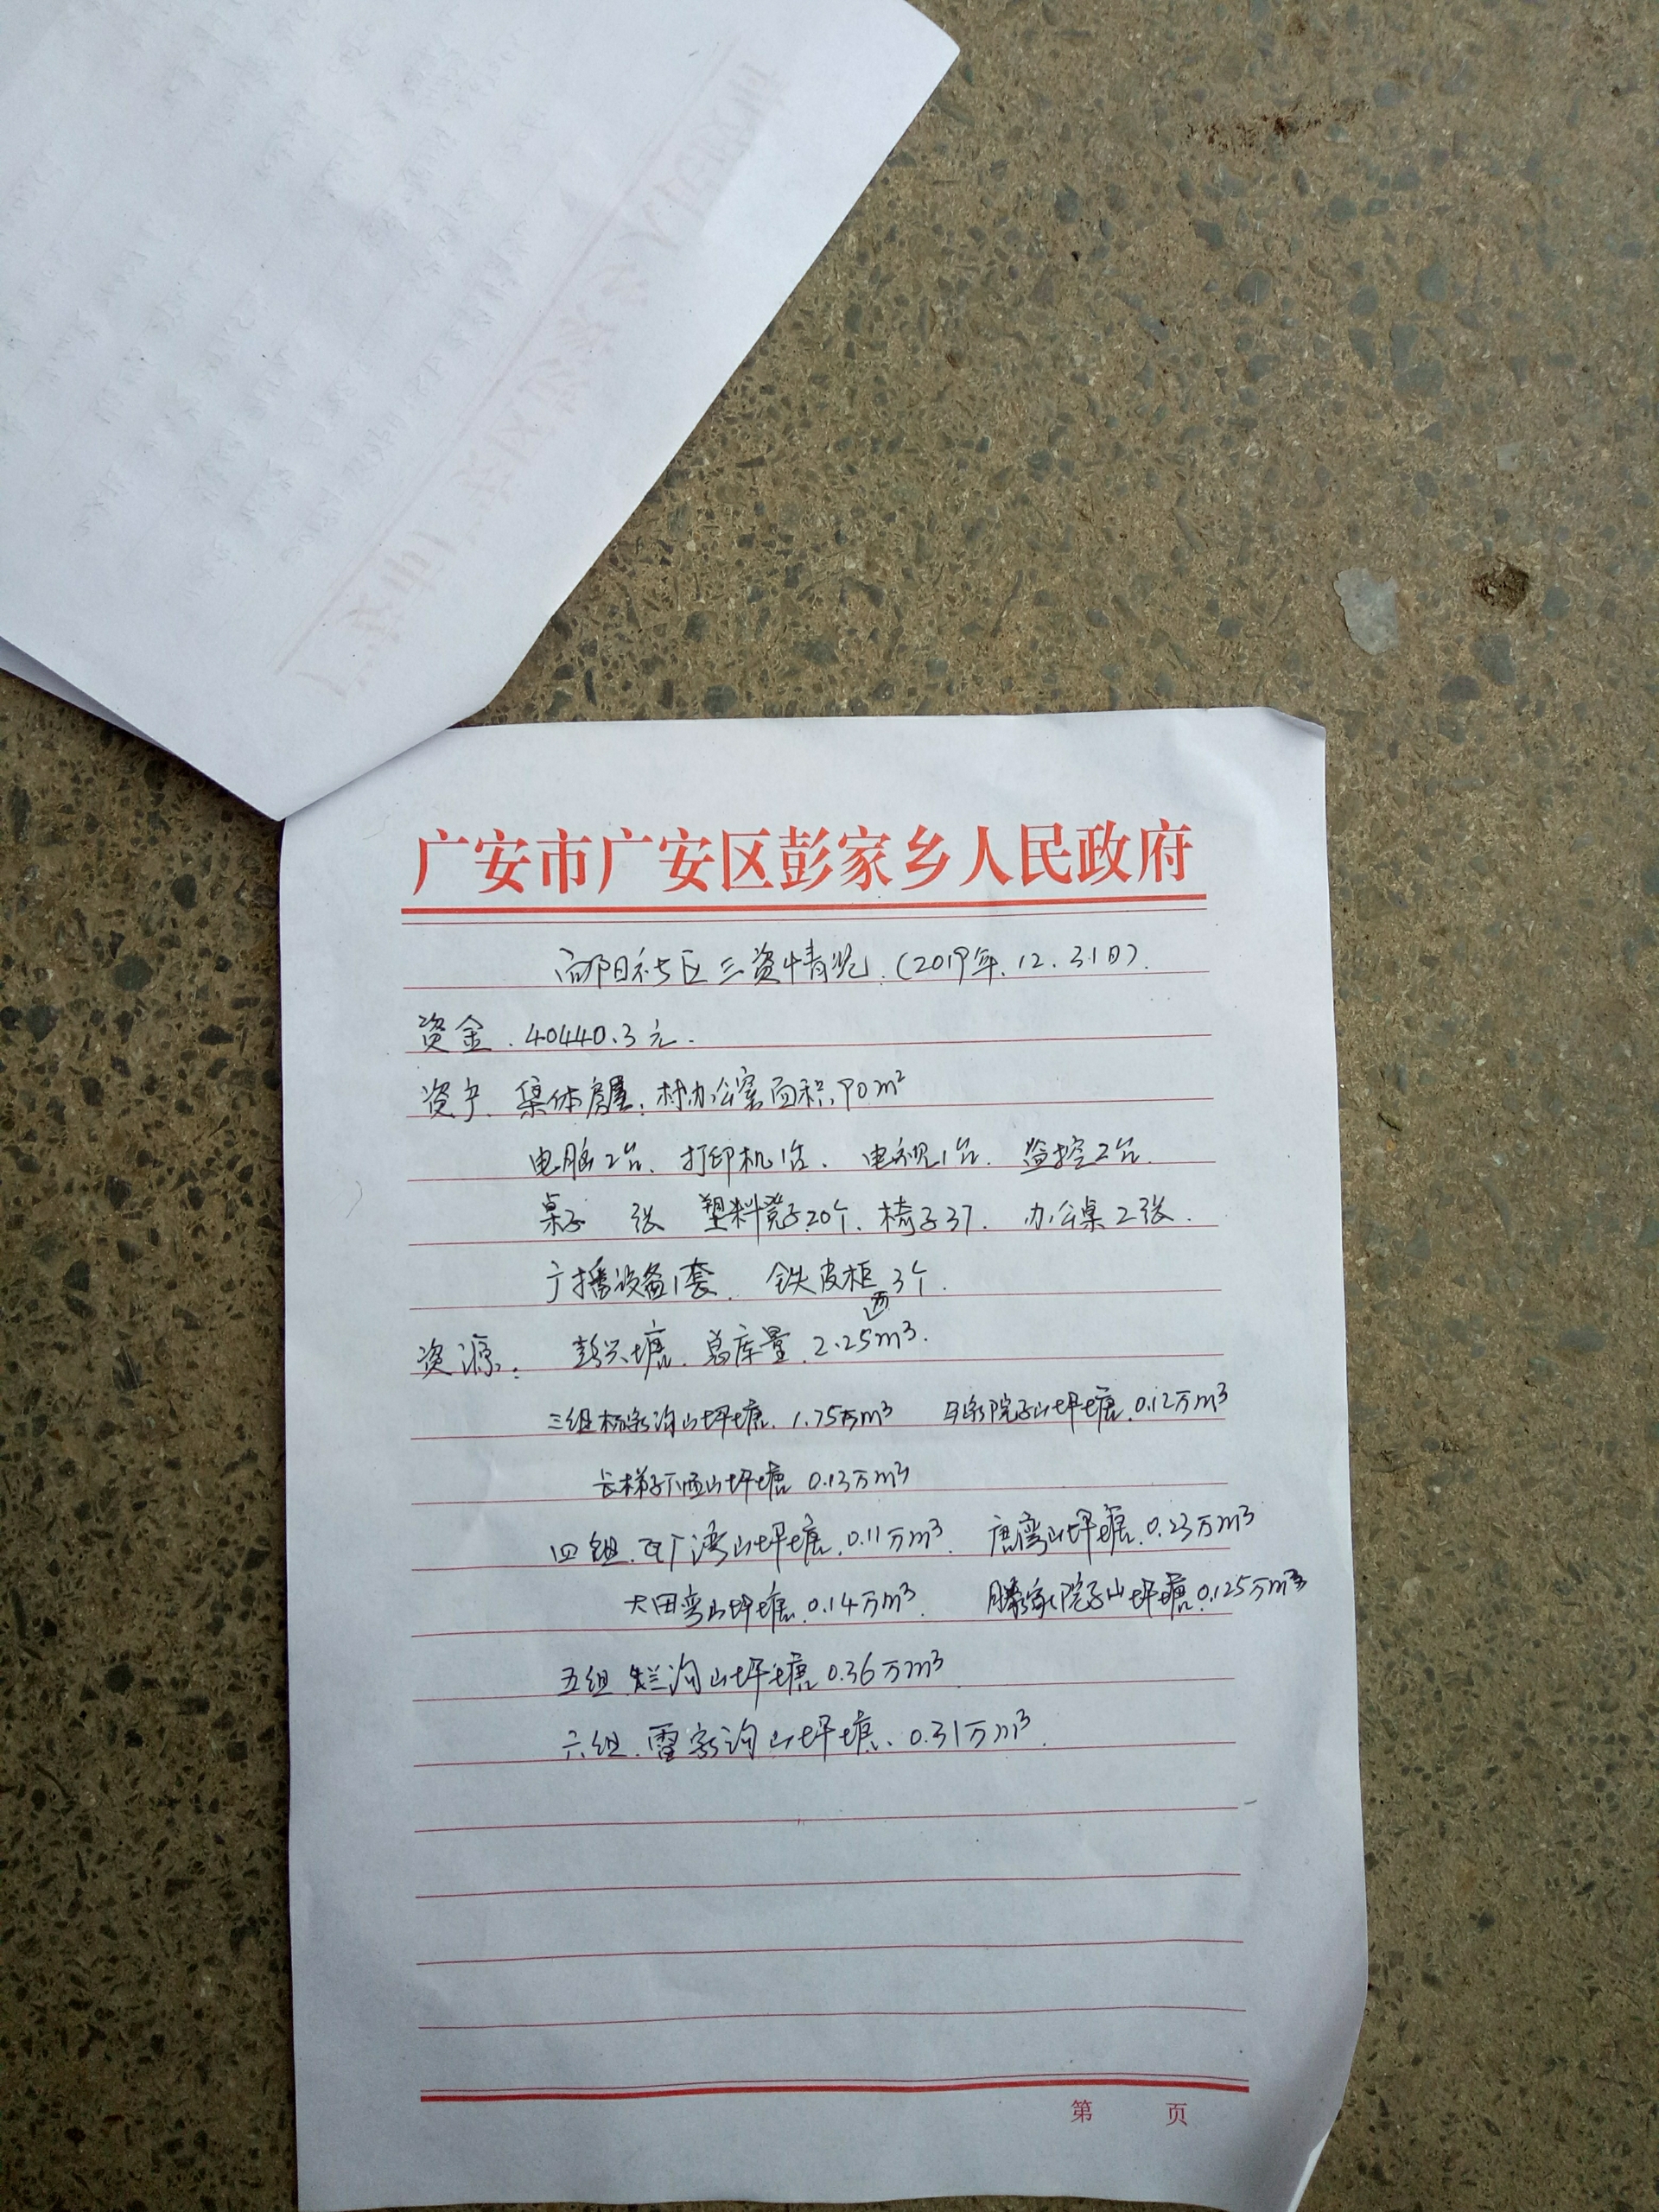 广安市广安区彭家乡人民政府
向阳社区三资情况.(2019年.12.31日).
资金.40440.3元.
资产、集体房屋:村办公室面积.90m²
电脑2台、打印机1台、电视1台.监控2台.
桌子 张 塑料凳子20个.椅子37.办公桌2张.
广播设备1套. 铁皮柜3个.
资源. 彭兴塘.总库量.2.25万m³.
三组杨家沟山坪塘.1.75万m³ 院子山坪塘.0.12万m³
长梯子下山坪塘 0.13万m³
四组.瓦厂湾山坪塘.0.11万m³. 唐湾山坪塘.0.23万m³
大田湾山坪塘.0.14万m³. 滕家院子山坪塘.0.125万m³
五组.烂沟山坪塘0.36万m³
六组.雷家沟山坪塘.0.31万m³.
第 页